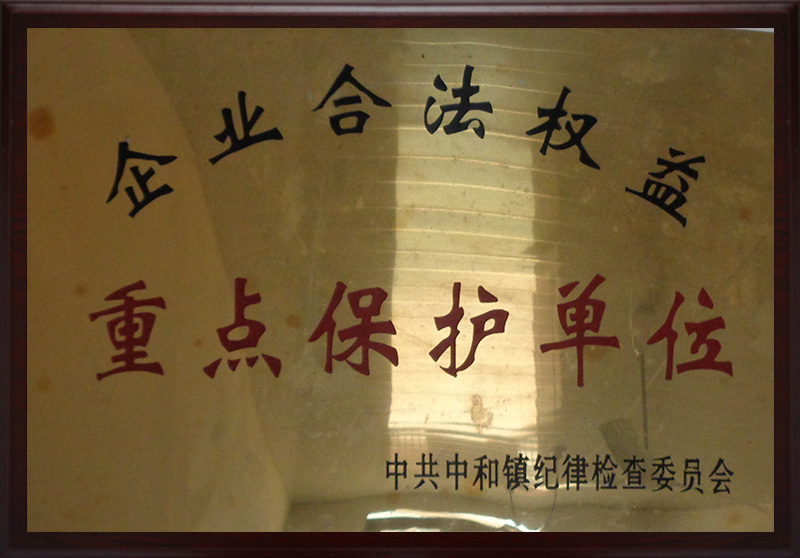 企业合法权益
重点保护单位
中共中和镇纪律检查委员会